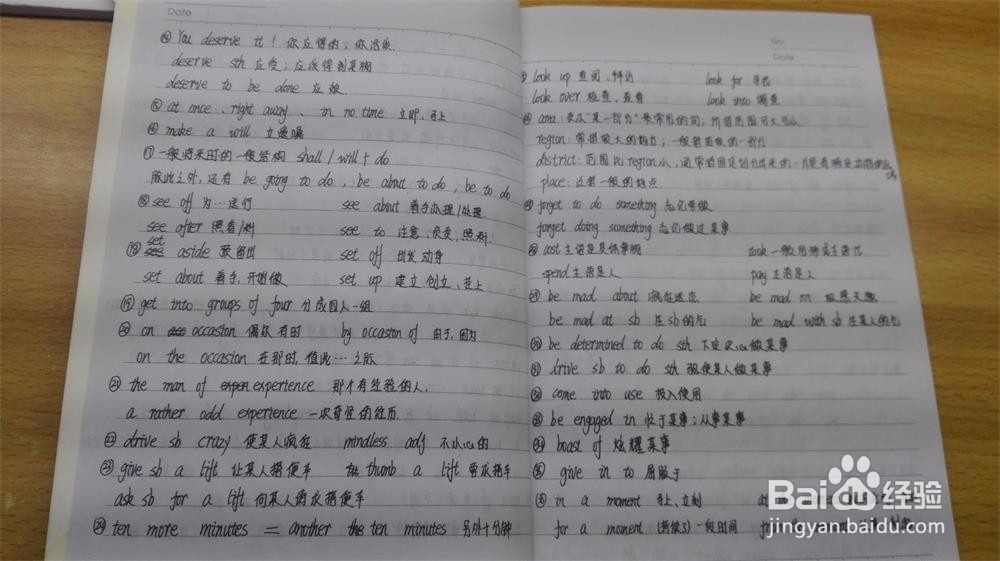 Date
⑭ You deserve it! 你应得的; 你活该.
deserve sth 应受; 应该得到某物
deserve to be done 应被
⑮ at once、right away、in no time 立即、马上
⑯ make a will 立遗嘱
⑰ 一般将来时的一般结构 shall / will + do
除此之外, 还有 be going to do, be about to do, be to do
⑱ see off 为…送行 see about 着手办理/处理
see after 照看/ see to 注意、负责、照料.
set aside 出 set off 出发动身
set about 着手, 开始做 set up 建立 创立、
⑲ get into groups of four 分成四人一组
⑳ on occasion 偶尔 有时 by occasion of 由于, 因为
on the occasion 在那时, 值此…之际
㉑ the man of experience 那个有经验的人.
a rather odd experience 一次奇怪的经历
㉒ drive sb crazy 使某人疯狂 mindless adj 不小心的
㉓ give sb a lift 让某人搭便车 thumb a lift 请求搭车
ask sb for a lift 向某人请求搭便车
㉔ ten more minutes = another ten minutes 另外十分钟
No.
Date
look up 查阅、拜访 look for 寻找
look over 检查、查看 look into 调查
area: 表示"某一部分"最常用的词; 所指范围可大可小
region: 常指较大的地方; 一般指国家的一部分
district: 范围比region小,
place: 一般的地点
forget to do something 忘记要做
forget doing something 忘记做过某事
cost 主语是某件事物 took 一般用物当主语
spend 主语是人 pay 主语是人
be mad about be mad on
be mad at sb 生sb的气 be mad with sb 生某人的气
㉚ be determined to do sth 下定决心做某事
㉛ drive sb to do sth 驱使某人做某事
come into use 投入使用
be engaged in 忙于某事; 从事某事
㉞ boast of 炫耀某事
give in to 屈服于
in a moment 马上, 立刻
for a moment 一段时间
Baidu经验
jingyan.baidu.com